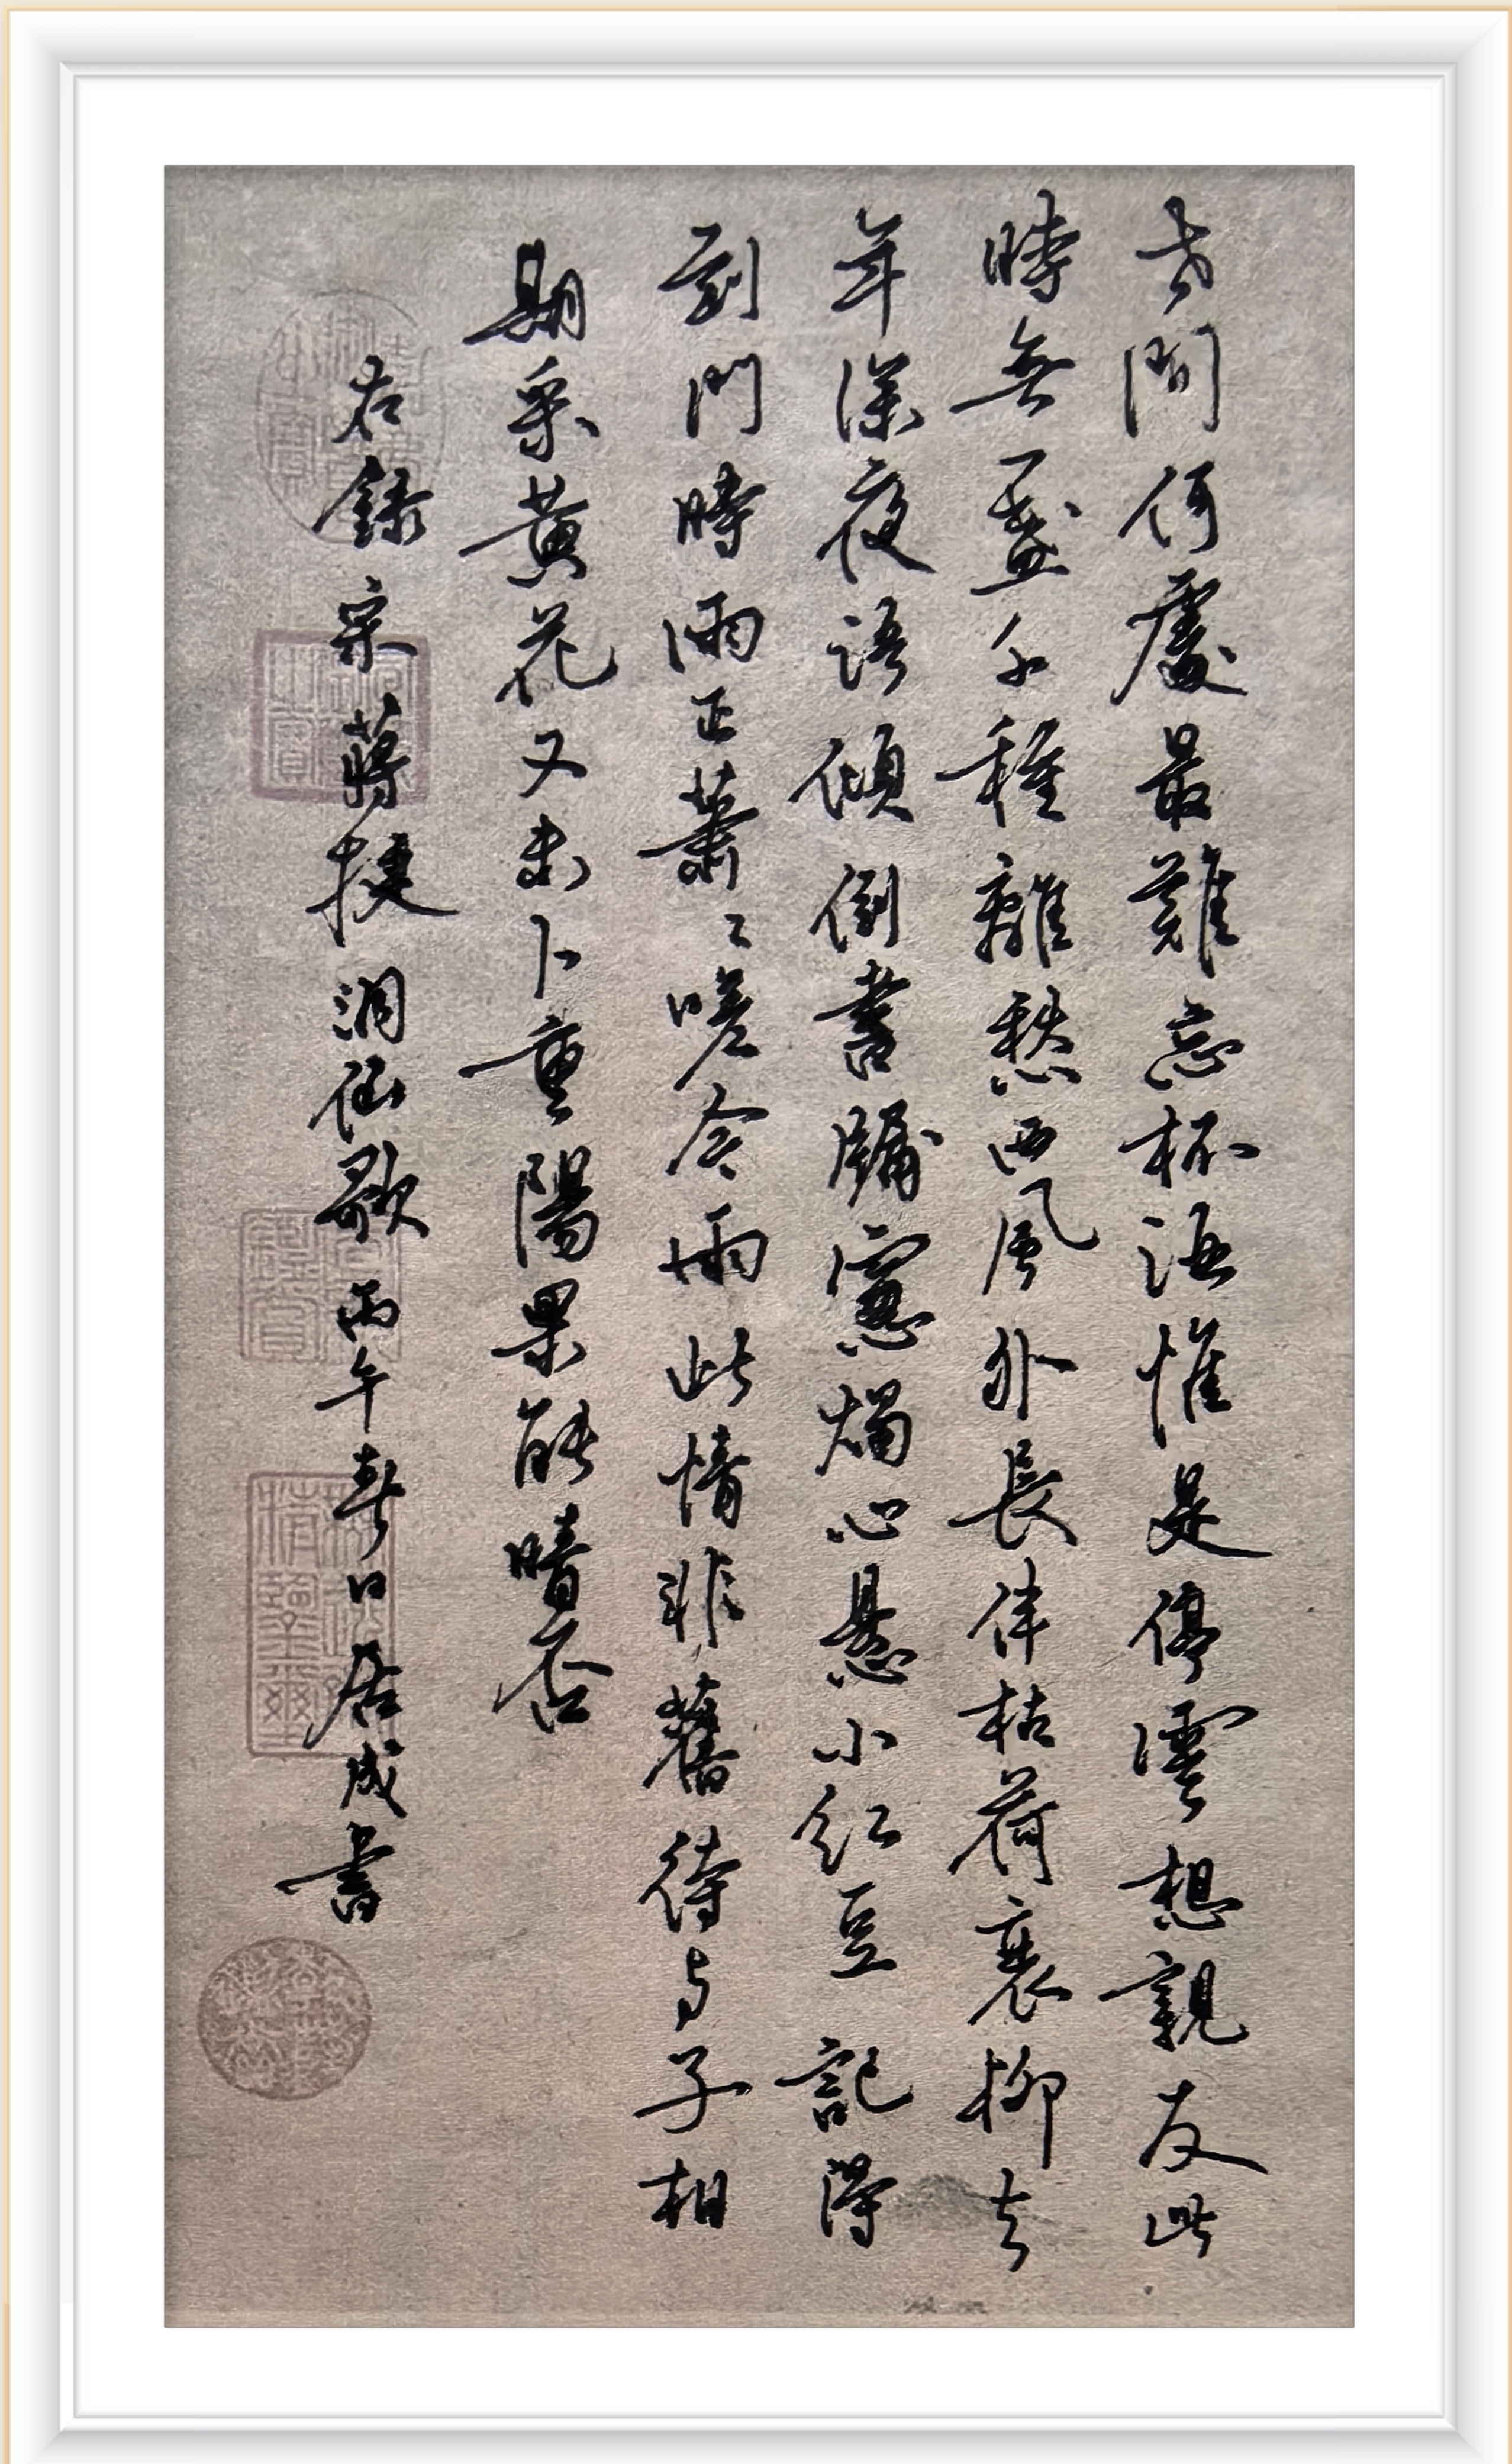 世間何處最難忘杯酒惟是停雲想親友此
時無一盞千種離愁西風外長伴枯荷衰柳去
年深夜語傾倒書牖窻燭心懸小紅豆記得
到門時雨正蕭〻嗟今雨此情非舊待与子相
期采黃花又未卜重陽果能晴否
右錄宋蔣捷洞仙歌丙午春日居成書